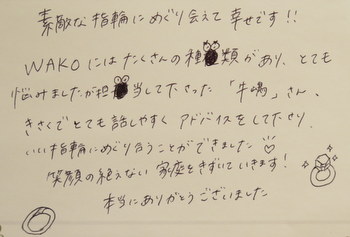 素敵な指輪にめぐり会えて幸せです!!
WAKOにはたくさんの種類があり、とても
悩みましたが担当して下さった「牛嶋」さん、
きさくでとても話しやすくアドバイスをして下さり、
いい指輪にめぐり合うことができました
笑顔の絶えない家庭をきずいていきます!
本当にありがとうございました